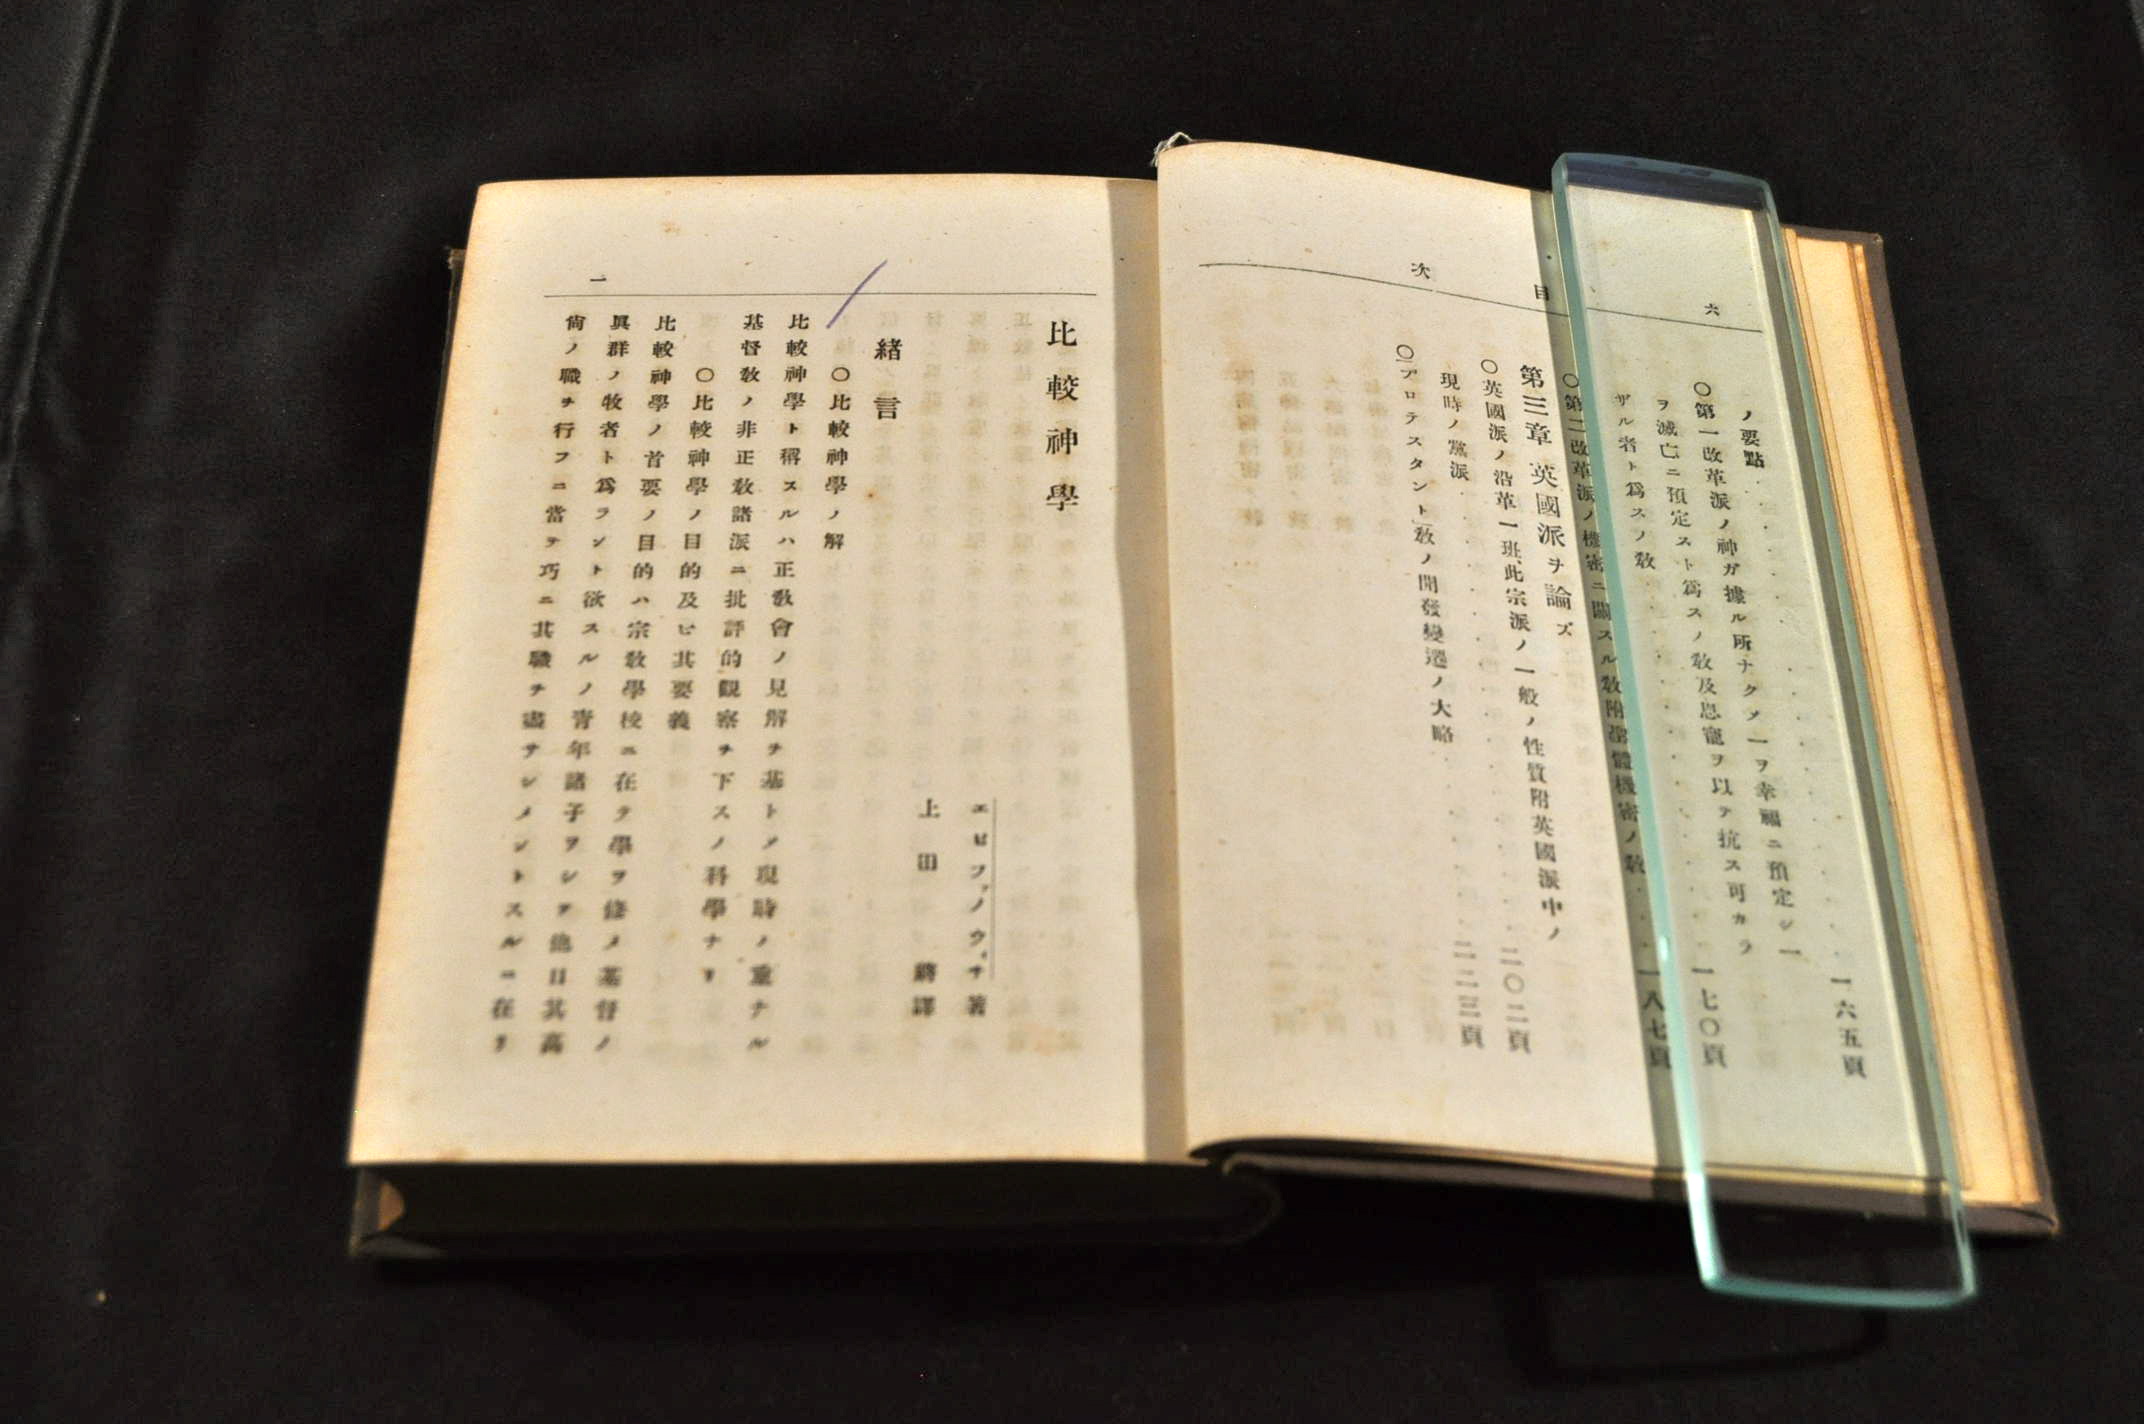 六
目次
ノ要點
一六五頁
〇第一改革派ノ神ガ據ル所ナクメ一ヲ幸福ニ預定シ一
ヲ滅亡ニ預定スト爲スノ敎及恩寵ヲ以テ抗ス可カラ
ザル者ト爲スノ敎
一七〇頁
〇第二改革派ノ機密ニ關スル敎附聖體機密ノ敎
一八七頁
第三章 英國派ヲ論ズ
〇英國派ノ沿革一班此宗派ノ一般ノ性質附英國派中ノ
現時ノ黨派
二〇二頁
〇プロテスタント敎ノ開發變遷ノ大略
二二三頁
一
比較神學
エピファノウィチ著
上田 將譯
緖言
〇比較神學ノ解
比較神學ト稱スルハ正敎會ノ見解ヲ基トメ現時ノ重ナル
基督敎ノ非正敎諸派ニ批評的觀察ヲ下スノ科學ナリ
〇比較神學ノ目的及ビ其要義
比較神學ノ首要ノ目的ハ宗敎學校ニ在テ學ヲ修メ基督ノ
眞群ノ牧者ト爲ラント欲スルノ靑年諸子ヲシテ他日其高
尙ノ職ヲ行フニ當テ巧ニ其職ヲ盡サシメントスルニ在リ